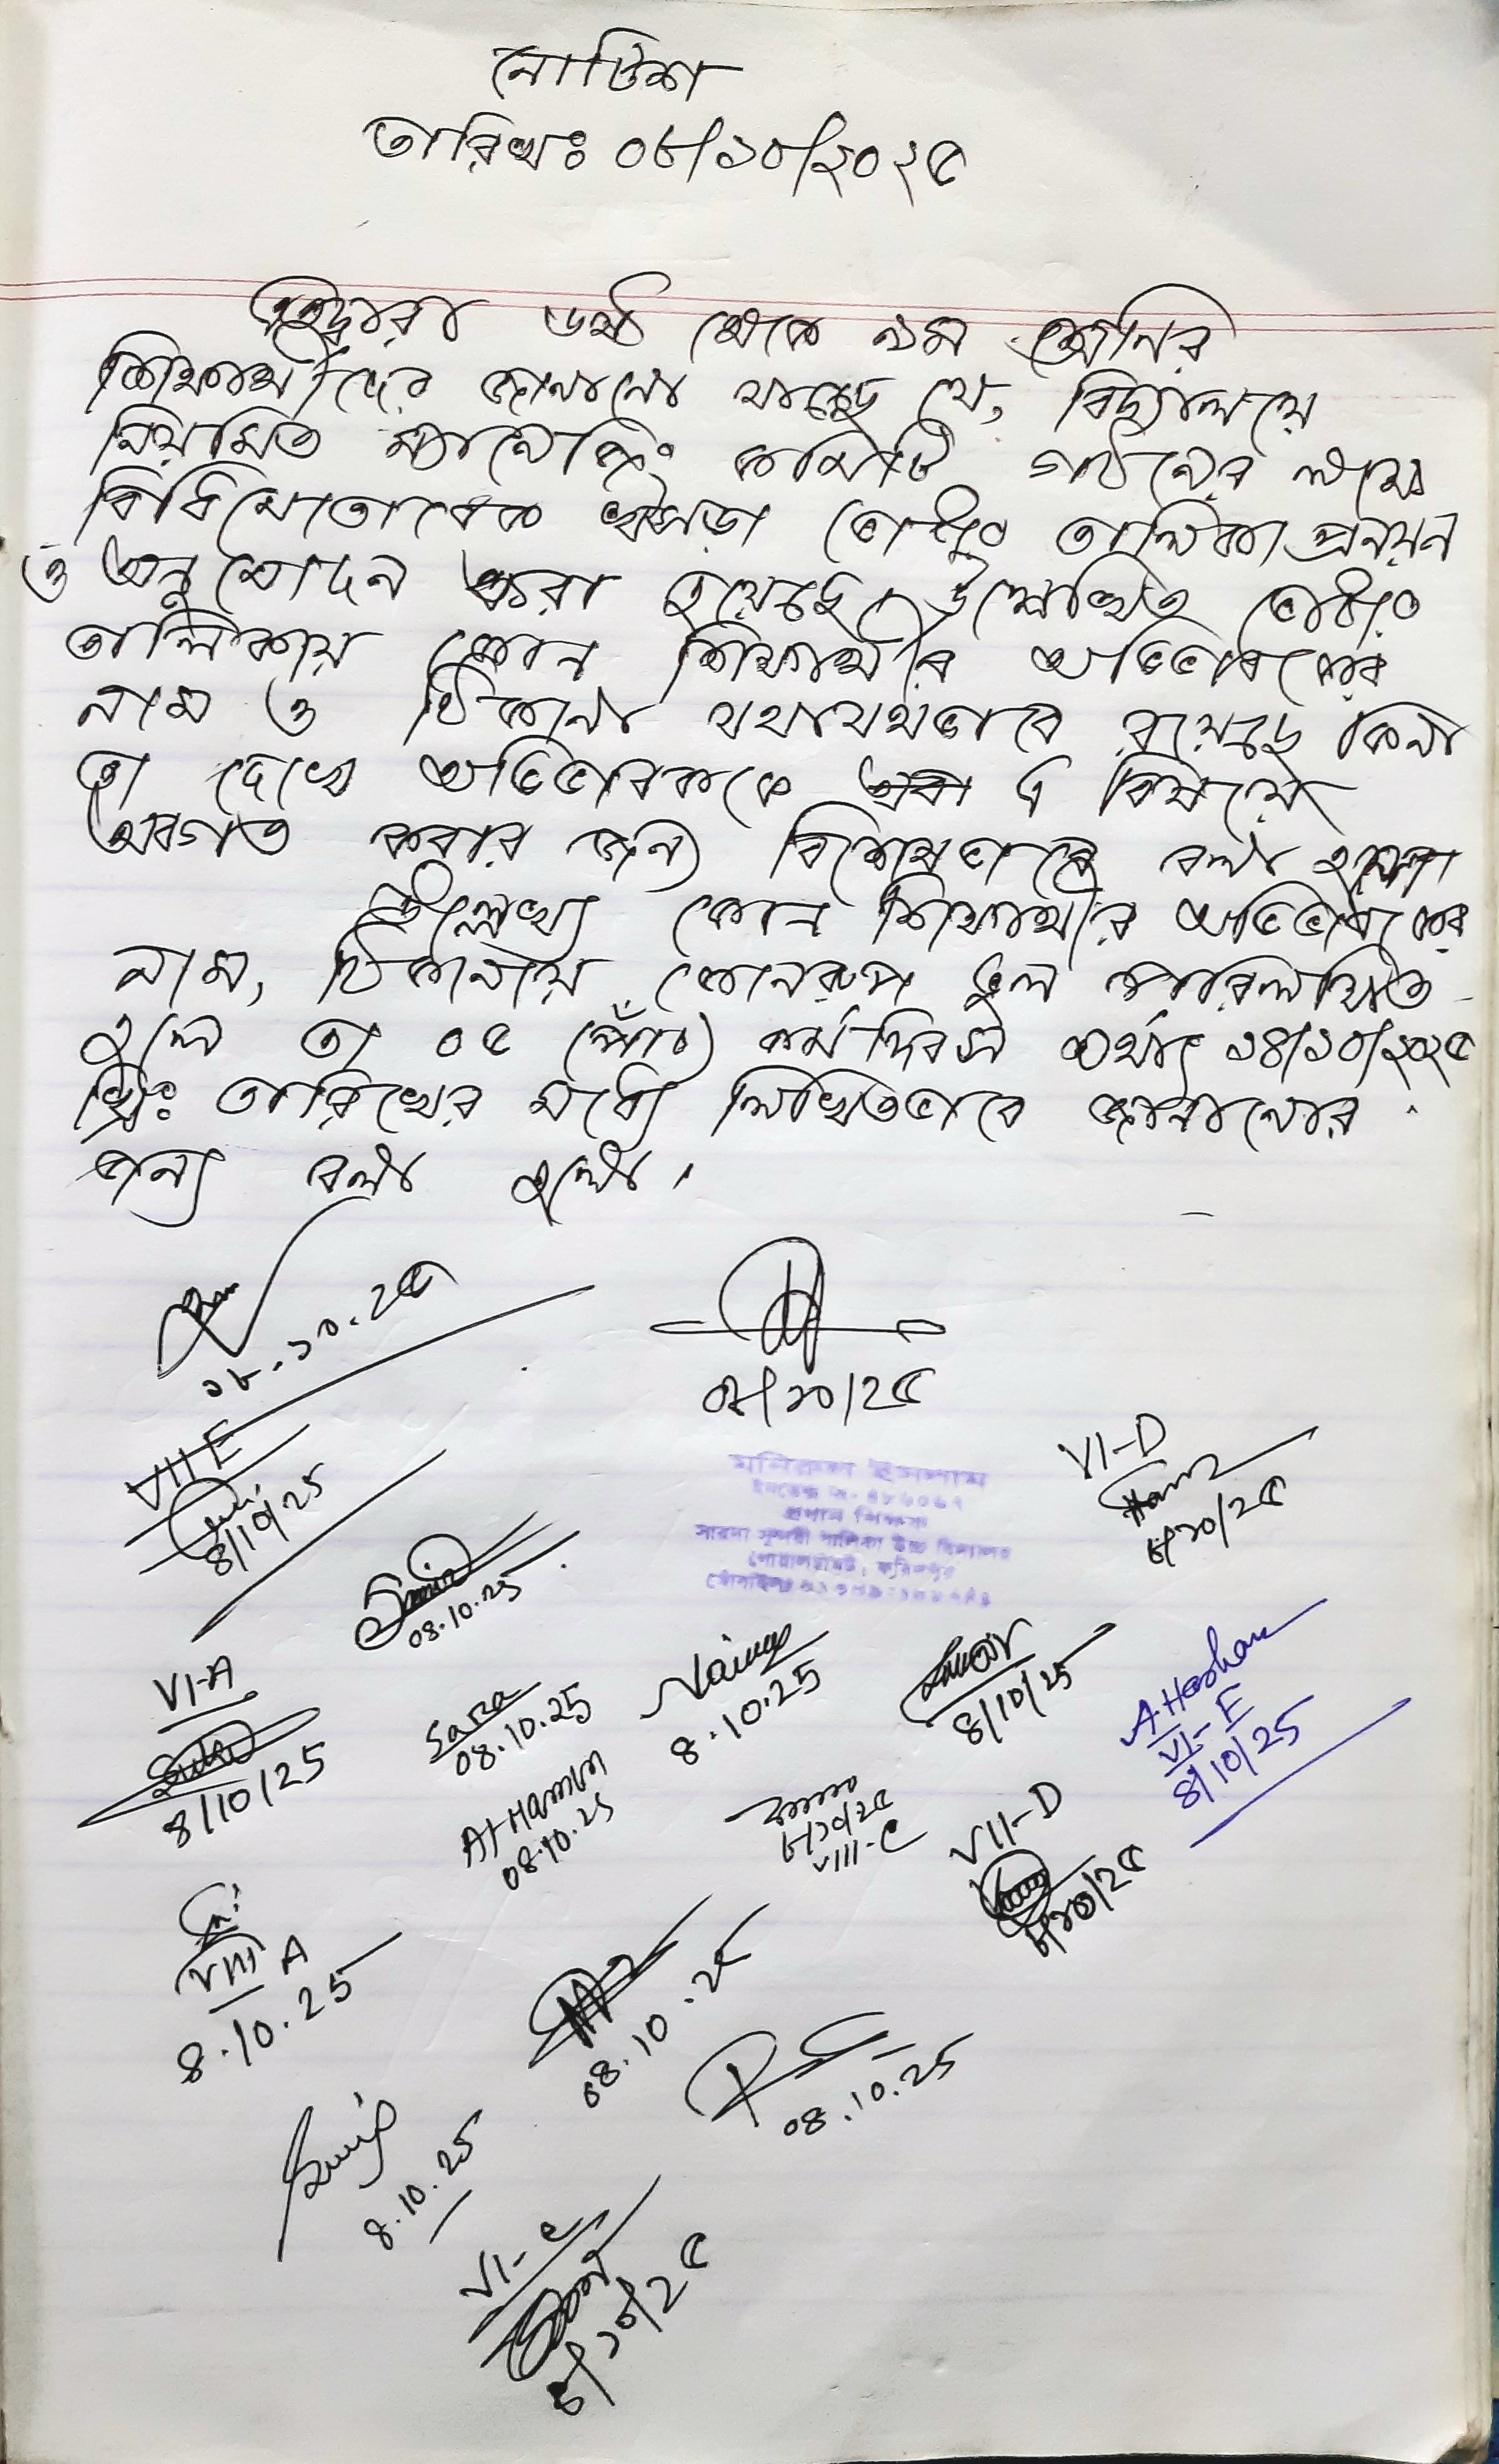 নোটিশ
তারিখঃ ০৮/১০/২০২৫
এতদ্বারা ৬ষ্ঠ থেকে ৯ম শ্রেনির
শিক্ষার্থীদের জানানো যাচ্ছে যে, বিদ্যালয়ে
নিয়মিত ম্যানেজিং কমিটি গঠনের লক্ষ্যে
বিধিমোতাবেক খসড়া ভোটার তালিকা প্রনয়ন
ও অনুমোদন করা হয়েছে। উল্লেখিত ভোটার
তালিকায় কোন শিক্ষার্থীর অভিভাবকের
নাম ও ঠিকানা যথাযথভাবে রয়েছে কিনা
তা দেখে অভিভাবককে এ বিষয়ে
অবগত করার জন্য বিশেষভাবে বলা হলো
উল্লেখ্য কোন শিক্ষার্থীর অভিভাবকের
নাম, ঠিকানায় কোনরুপ ভুল পরিলক্ষিত
হলে তা ০৫ (পাঁচ) কর্ম দিবস অর্থাৎ ১৪/১০/২০২৫
খ্রিঃ তারিখের মধ্যে লিখিতভাবে জানানোর
জন্য বলা হলো।
০৮.১০.২৫
০৮/১০/২৫
VII E
8/10/25
VI-D
৮/১০/২৫
মনিরুল ইসলাম
প্রধান শিক্ষক
সারদা সুন্দরী বালিকা উচ্চ বিদ্যালয়
গোয়ালচামট, ফরিদপুর
08.10.25
VI-A
8/10/25
Sara
08.10.25
8.10.25
8/10/25
A.Hashan
VI-E
8/10/25
Al-Hamin
08.10.25
৮/১০/২৫
VIII-C
VII-D
৮/১০/২৫
VIII A
8.10.25
08.10.25
08.10.25
8.10.25
VI-C
৮/১০/২৫